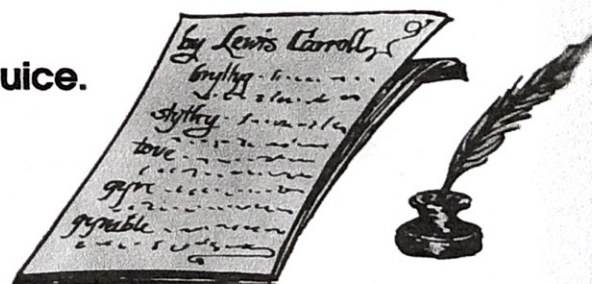 uice.
by Lewis Carroll,
bryllyg
slythy
tove
gyre